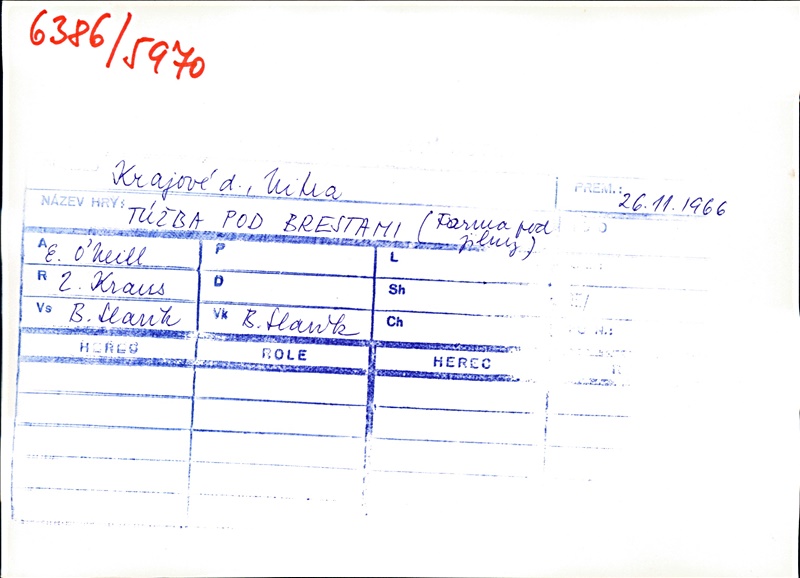 6386/5970
Krajové d., Nitra
PREM.: 26.11.1966
NÁZEV HRY: TÚŽBA POD BRESTAMI (Farma pod jilmy)
A E. O'Neill P L
R Kraus D Sh
Vs B. Slavík Vk B. Slavík Ch
HEREC ROLE HEREC